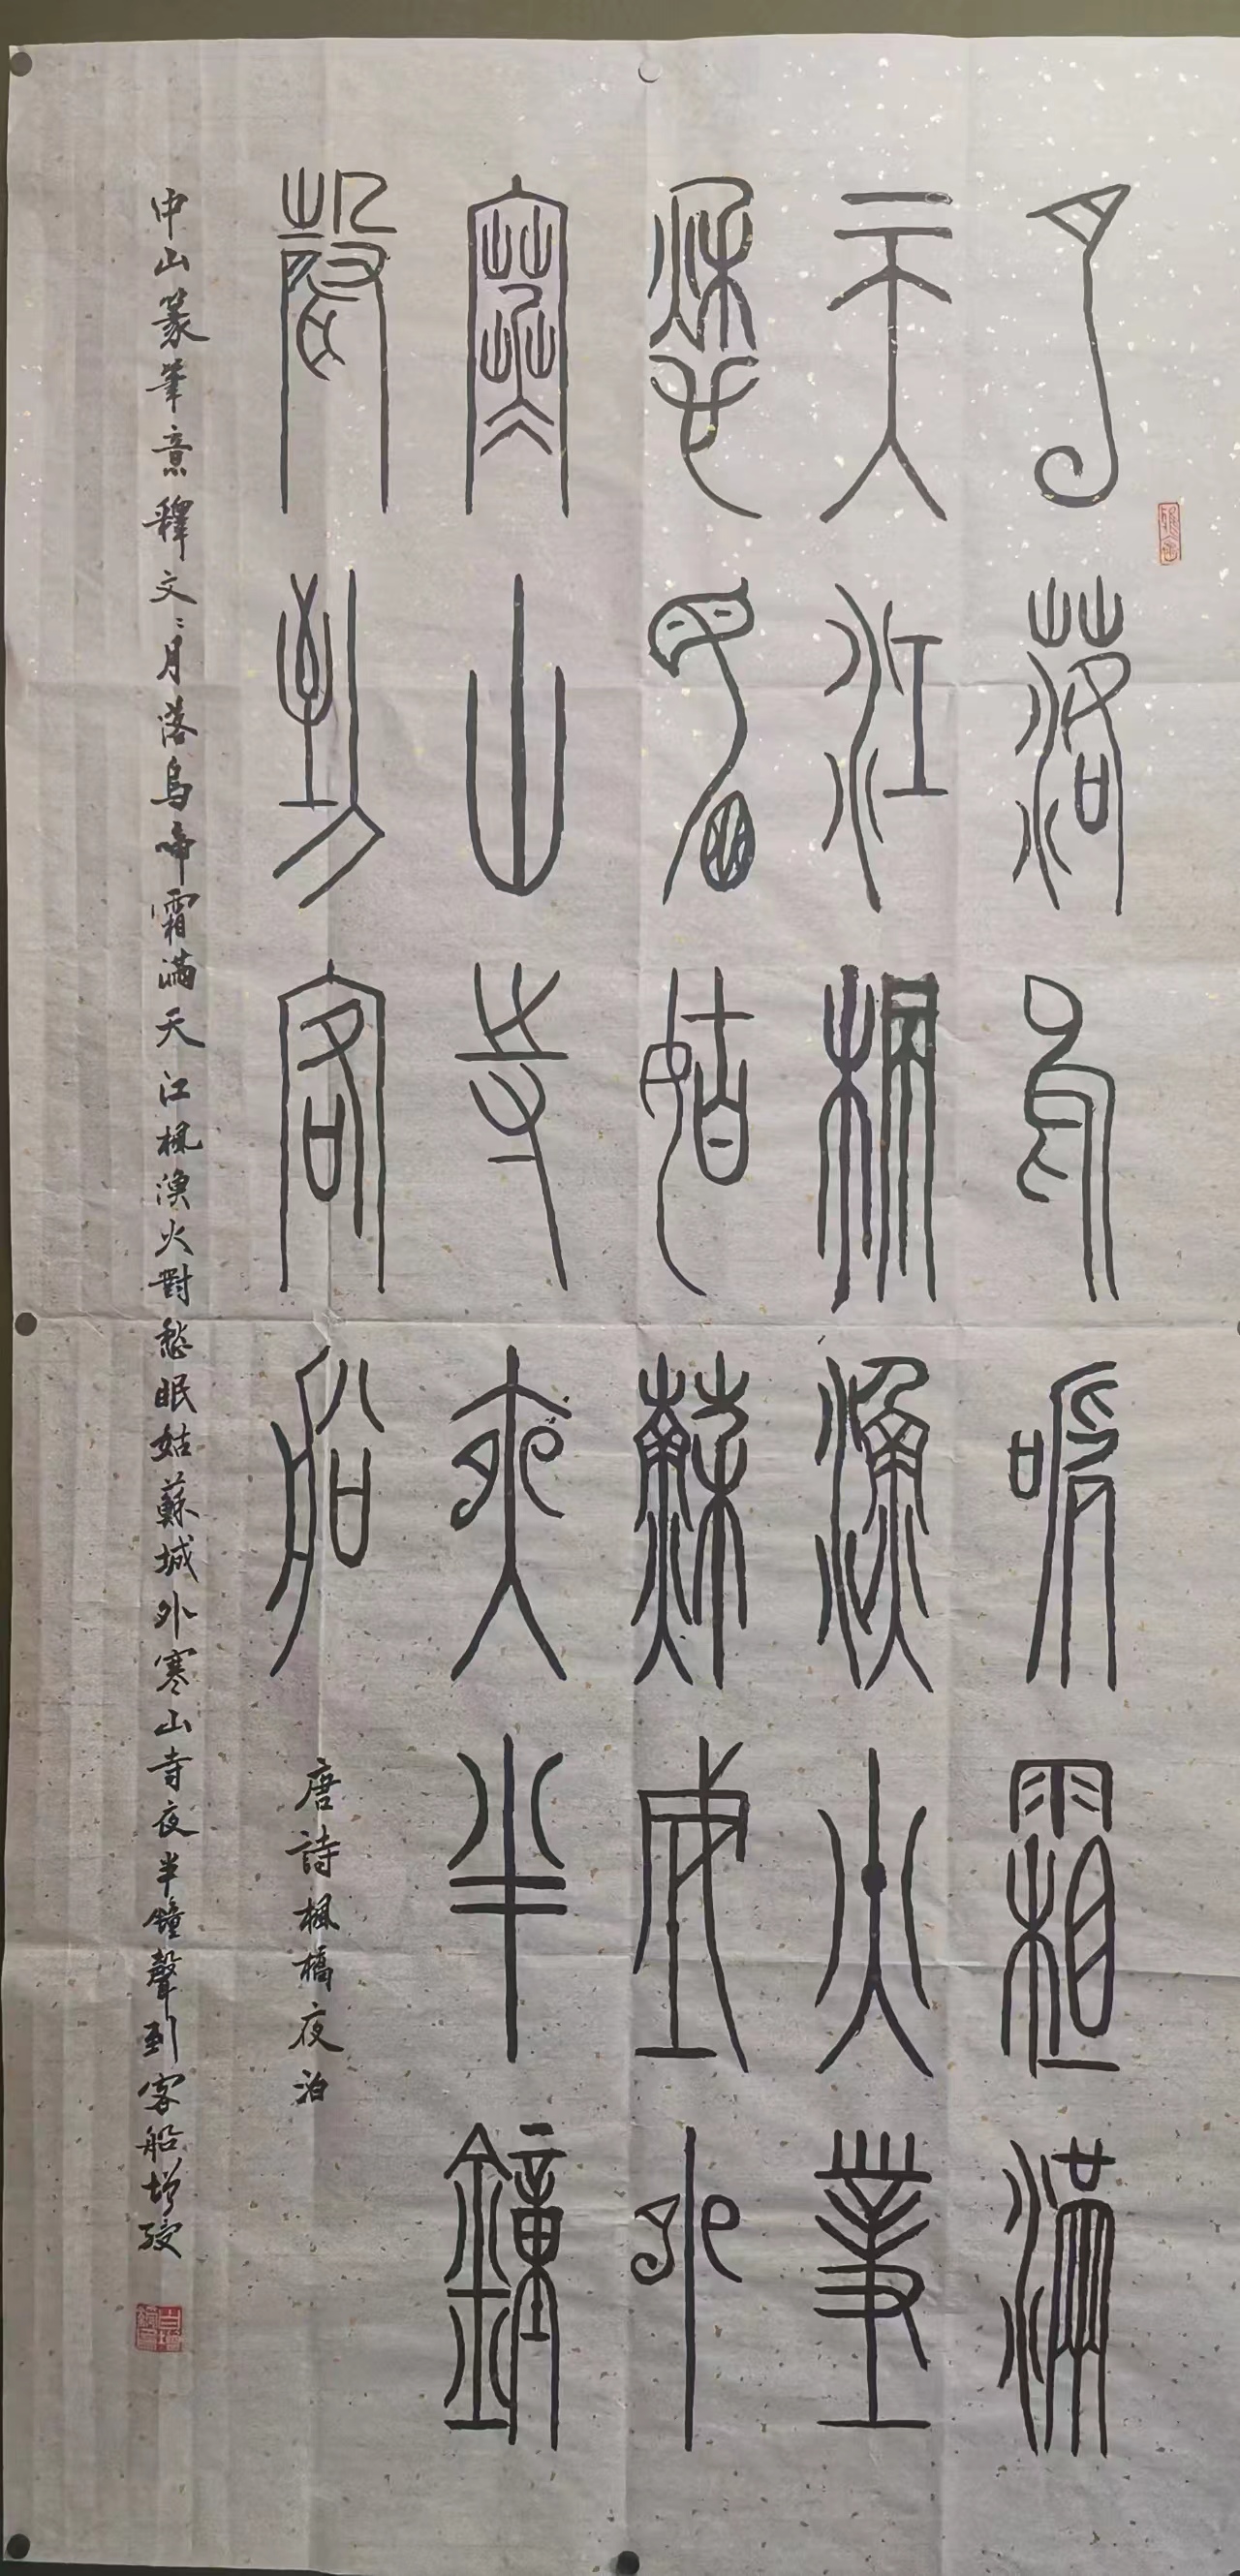 月落烏啼霜滿
天江楓漁火對
愁眠姑蘇城外
寒山寺夜半鐘
聲到客船
唐詩楓橋夜泊
中山篆筆意釋文:月落烏啼霜滿天江楓漁火對愁眠姑蘇城外寒山寺夜半鐘聲到客船增